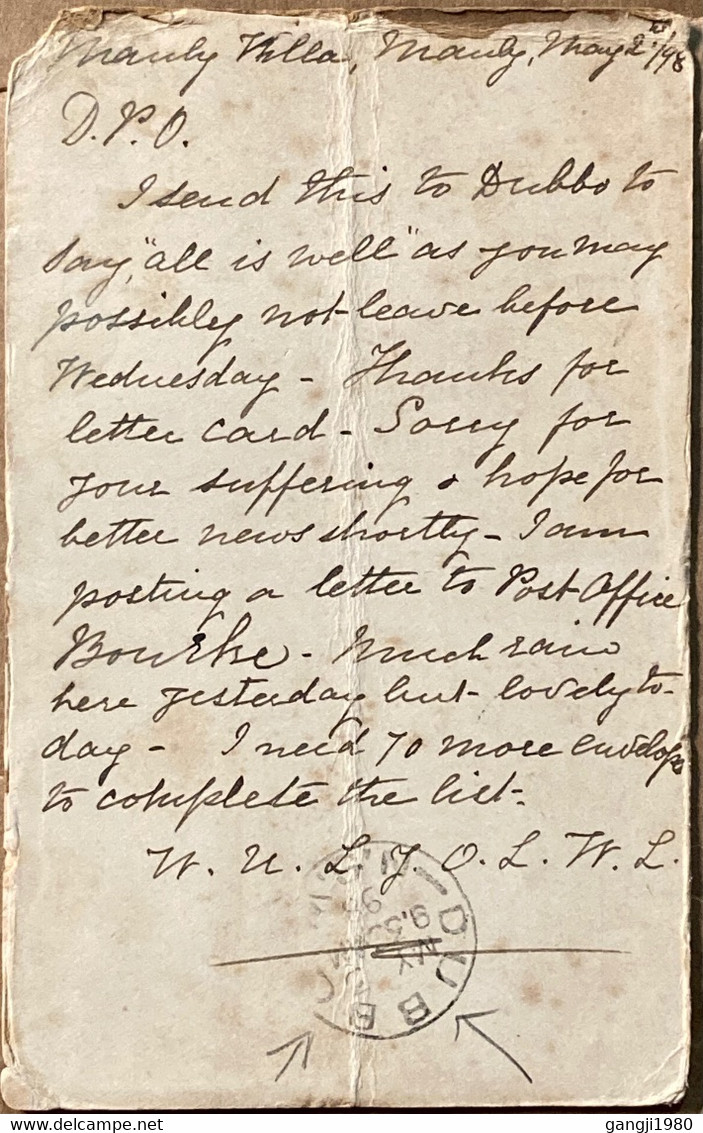 Manly Villa, Manly, May 2nd/98
D.P.O.
I send this to Dubbo to
say, "all is well" as you may
possibly not leave before
Wednesday - Thanks for
letter card - Sorry for
your suffering & hope for
better news shortly - I am
posting a letter to Post Office
Bourke - Much rain
here yesterday but lovely to-
day - I need 70 more envelope
to complete the list.
W. U. L. Y. O. L. W. L.
DUBBO
MY
98
gangji1980